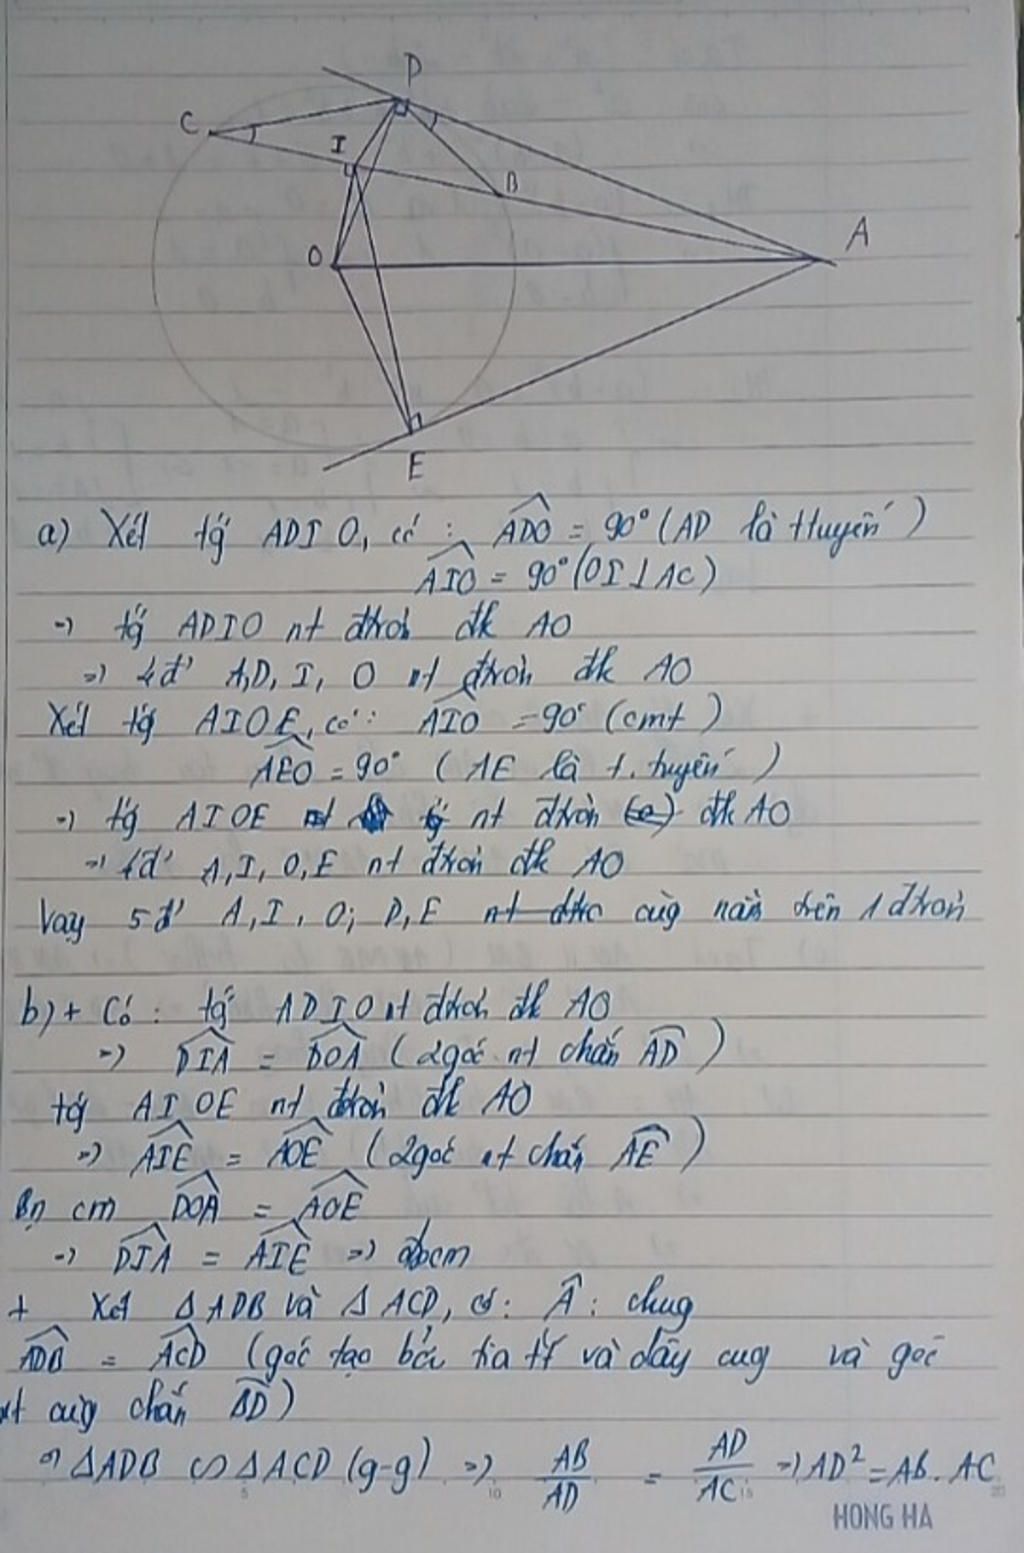 D
C
I
B
O
A
E
a) Xét tg ADIO, có : ADO = 90° (AD là ttuyến)
AIO = 90° (OI ⊥ AC)
=> tg ADIO nt đtròn đk AO
=> 4đ' A,D, I, O nt đtròn đk AO
Xét tg AIOE, có : AIO = 90° (cmt)
AEO = 90° (AE là t. tuyến)
=> tg AIOE nt đtròn đk AO
=> 4đ' A,I, O,E nt đtròn đk AO
Vay 5đ' A,I, O; D,E cùg nằm trên 1 đtròn
b) + Có : tg ADIO nt đtròn đk AO
=> DIA = DOA (2góc nt chắn AD)
tg AIOE nt đtròn đk AO
=> AIE = AOE (2góc nt chắn AE)
cm DOA = AOE
=> DIA = AIE => đpcm
+ Xét Δ ADB và Δ ACD, có: A : chug
ADB = ACD (góc tạo bởi tia tt và dây cug và góc
nt cùg chắn BD)
=> ΔADB ∽ ΔACD (g-g) => AB/AD = AD/AC => AD² = AB. AC
HONG HA